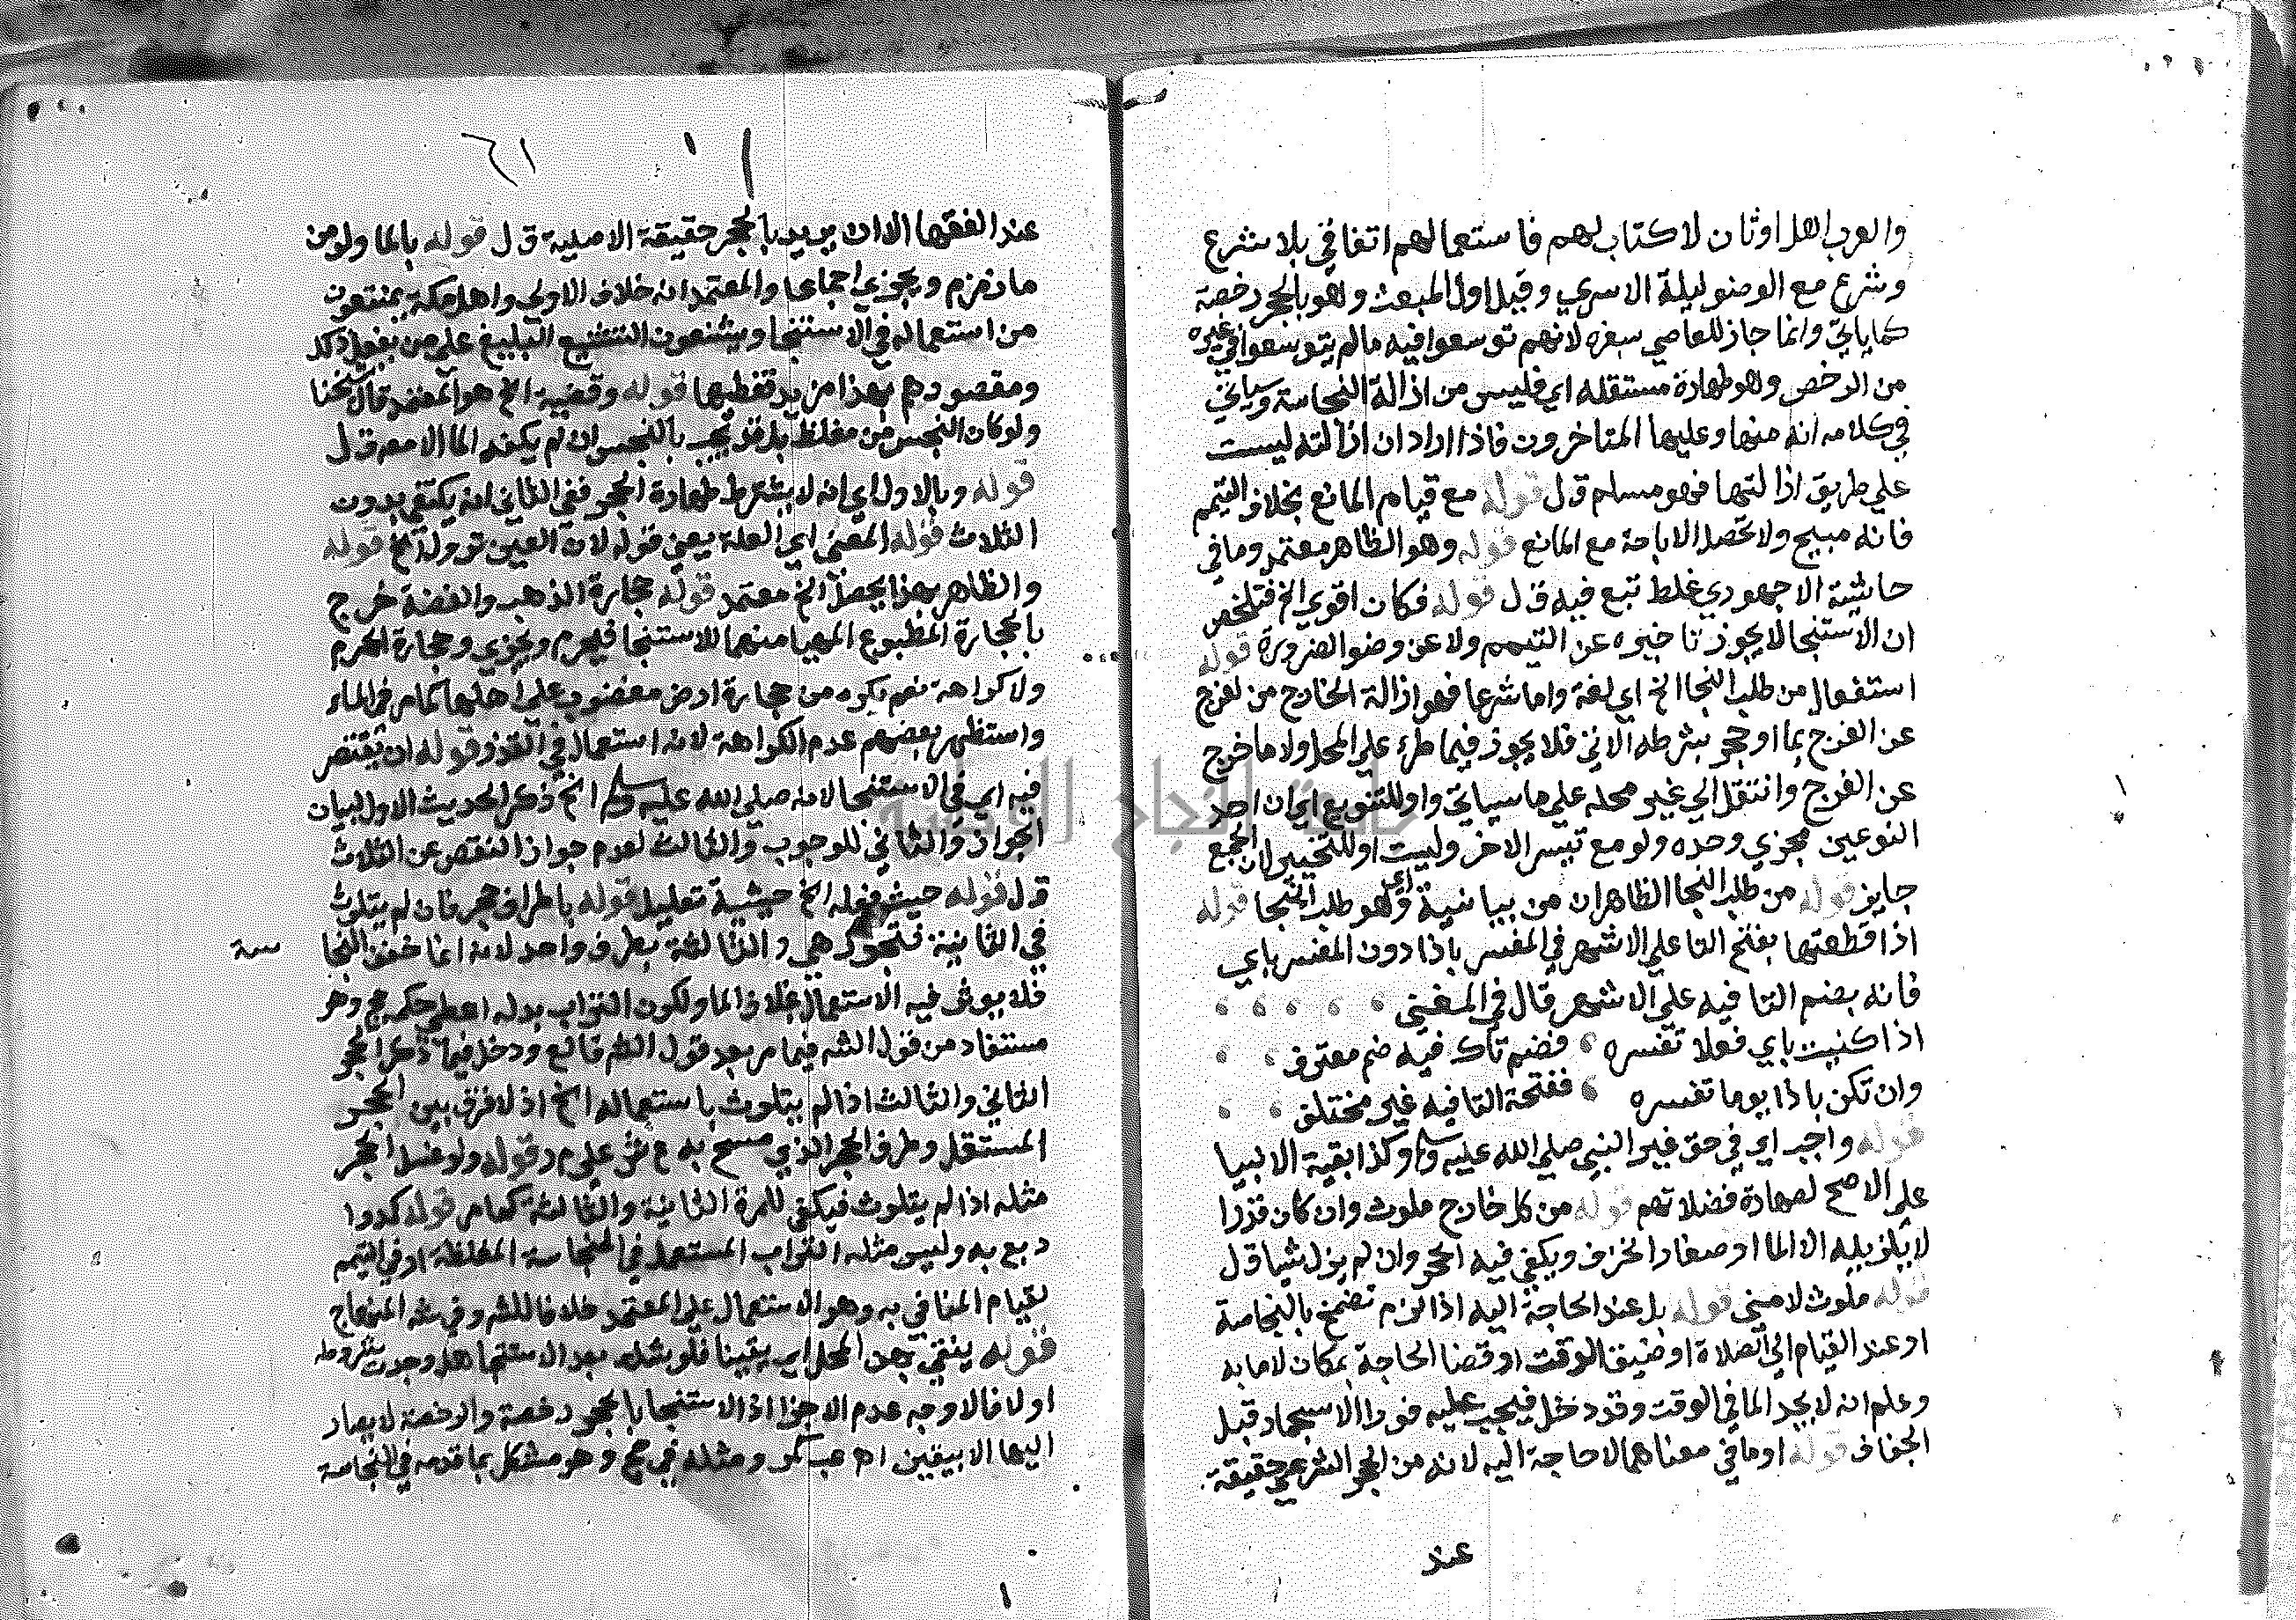 والعرب اهل اوثان لا كتاب لهم فاستعمالهم اتفاقي بلا شرع
وشرع مع الوضو ليلة الاسري وقيل اول المبعث وهو بالحجر رخصة
كما ياتي وانما جاز للعاصي بسفره لانهم توسعوا فيه ما لم يتوسعوا في غيره
من الرخص وهو طهارة مستقله اي فليس من ازالة النجاسة وسياتي
في كلامه انه منها وعليها المتاخرون فاذا اراد ان ازالته ليست
علي طريق ازالتها فهو مسلم ق ل قوله مع قيام المانع بخلاف التيمم
فانه مبيح ولا تحصل الاباحة مع المانع قوله وهو الظاهر معتمد وما في
حاشية الاجهوري غلط تبع فيه ق ل قوله فكان اقوي الخ فتلخص
ان الاستنجا لا يجوز تاخيره عن التيمم ولا عن وضو الضرورة قوله
استفعال من طلب النجا الخ اي لغة واما شرعا فهو ازالة الخارج من الفرج
عن الفرج بما او حجر بشرطه الاتي فلا يجوز فيما طرء علي المحل ولا ما خرج
عن الفرج وانتقل الي غير محله علي ما سياتي واو للتنويع اي ان احد
النوعين مجزي وحده ولو مع تيسر الاخر وليست او للتخيير لان الجمع
جايز قوله من طلب النجا الظاهر ان من بيانية اي وهو طلب النجا قوله
اذا قطعتها بفتح التا علي الاشهر في المفسر باذا دون المفسر باي
فانه بضم التا فيه علي الاشهر قال في المغني
اذا كنيت باي فعلا تفسره فضم تاك فيه ضم معترف
وان تكن باذا يوما تفسره ففتحة التا فيه غير مختلق
قوله واجب اي في حق غير النبي صلي الله عليه وسلم وكذا بقية الانبيا
علي الاصح لطهارة فضلاتهم قوله من كل خارج ملوث وان كان قذرا
لا يزيله الا الما او صغار الخزف ويكفي فيه الحجر وان لم يزل شيا ق ل
قوله ملوث لا مني قوله بل عند الحاجة اليه اذا لزم تضمخ بالنجاسة
او عند القيام الي الصلاة او ضيق الوقت او قضا الحاجة بمكان لا ما به
وعلم انه لا يجد الما في الوقت وقد دخل فيجب عليه فورا الاستجمار قبل
الجفاف قوله او ما في معناهما لا حاجة اليه لانه من الحجر الشرعي حقيقة
عند
٦١
عند الفقها الا ان يريد بالحجر حقيقة الاصلية ق ل قوله بالما ولو من
ما زمزم ويجزي اجماعا والمعتمد انه خلاف الاولي واهل مكة يمتنعون
من استعماله في الاستنجا ويشنعون التشنيع البليغ علي من يفعل ذلك
ومقصودهم بهذا مزيد تعظيمها قوله وقضية الخ هو المعتمد قال شيخنا
ولو كان النجس من مغلظ بل قد يجب بالنجس ان لم يكن الما الا معه ق ل
قوله وبالاول اي انه لا يشترط طهارة الحجر ففي الثاني انه يكتفي بدون
الثلاث قوله المعني اي العلة يعني قوله لان العين تزولة الخ قوله
والظاهر بهذا يحصل الخ معتمد قوله حجارة الذهب والفضة خرج
بالحجارة المطبوع المهيا منهما للاستنجا فيحرم ويجزي وحجارة الحرم
ولا كراهة نعم يكره من حجارة ارض مغضوب علي اهلها كما مر في الماء
واستظهر بعضهم عدم الكراهة لانه استعمال في القذر قوله ان يقتصر
فيه اي في الاستنجا لانه صلي الله عليه وسلم الخ ذكر الحديث الاول لبيان
الجواز والثاني للوجوب والثالث لعدم جواز النقص عن الثلاث
ق ل قوله حيث فعله الخ حيثية تعليل قوله باطراف حجر فان لم يتلوث
في الثانية فتجوز هي والثالثة بطرف واحد لانه انما خفف النجا
سة
فلا يوثر فيه الاستعمال بخلاف الما ولكون التراب بدله اعطي حكمه حج وهو
مستفاد من قول الشه فيما مر بعد قول الظم قالع ودخل فيما ذكر الحجر
الثاني والثالث اذا لم يتلوث باستعماله الخ اذ لا فرق بين الحجر
المستقل وطرف الحجر الذي مسح به ع ش علي م ر قوله ولو غسل الحجر
مثله اذا لم يتلوث فيكفي للمرة الثانية والثالثة كما مر قوله كدوا
دبغ به وليس مثله التراب المستعمل في النجاسة المغلظة او في التيمم
لقيام المنافي به وهو الاستعمال علي المعتمد خلافا للشه وفي شه المنهاج
قوله ينقي بهن المحل اي يقينا فلو شك بعد الاستنجا هل وجدت شروطه
او لا فالاوجه عدم الاجزا اذ الاستنجا بالحجر رخصة والرخصة لا يصار
اليها الا بيقين اه ومثله في حج وهو مشكل بما قدمه في النجاسة